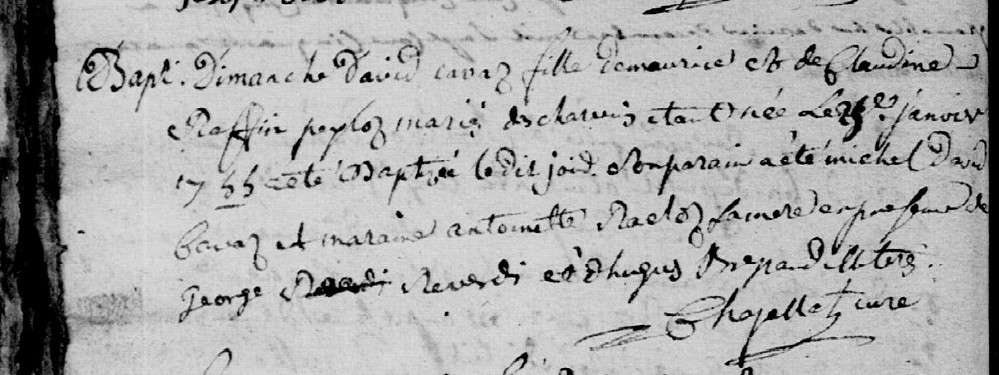 Bapt. Dimanche David cavaz fille demaurice et de Claudine
Raffin peyloz mariés étant née Le janvier
1755 a été Baptizée ledit jour. Son parain a été michel David
cavaz et maraine antoinette Racloz Lamere en presence de
George Reverdi et d'hugues illiterez.
Chapellet curé